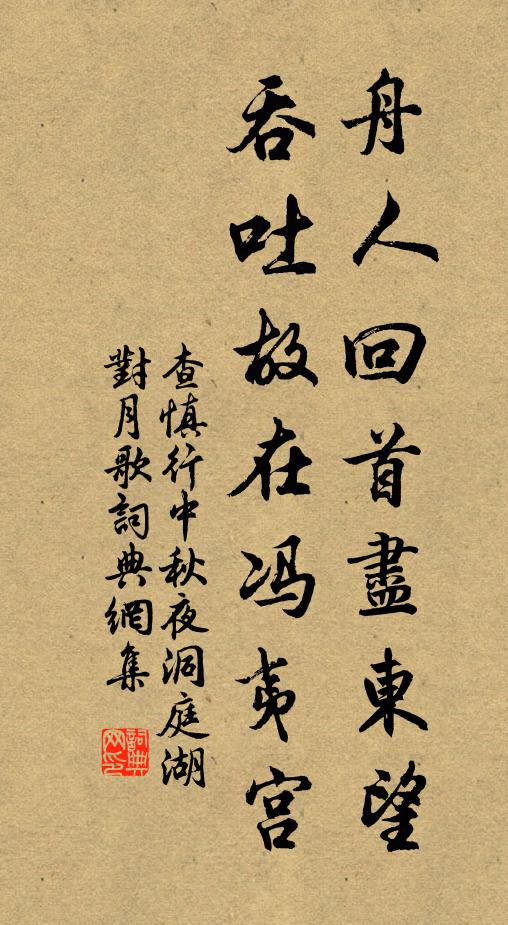 舟人回首盡東望
吞吐故在冯夷宫
查慎行中秋夜洞庭湖
對月歌詞典網集
詞典
网印